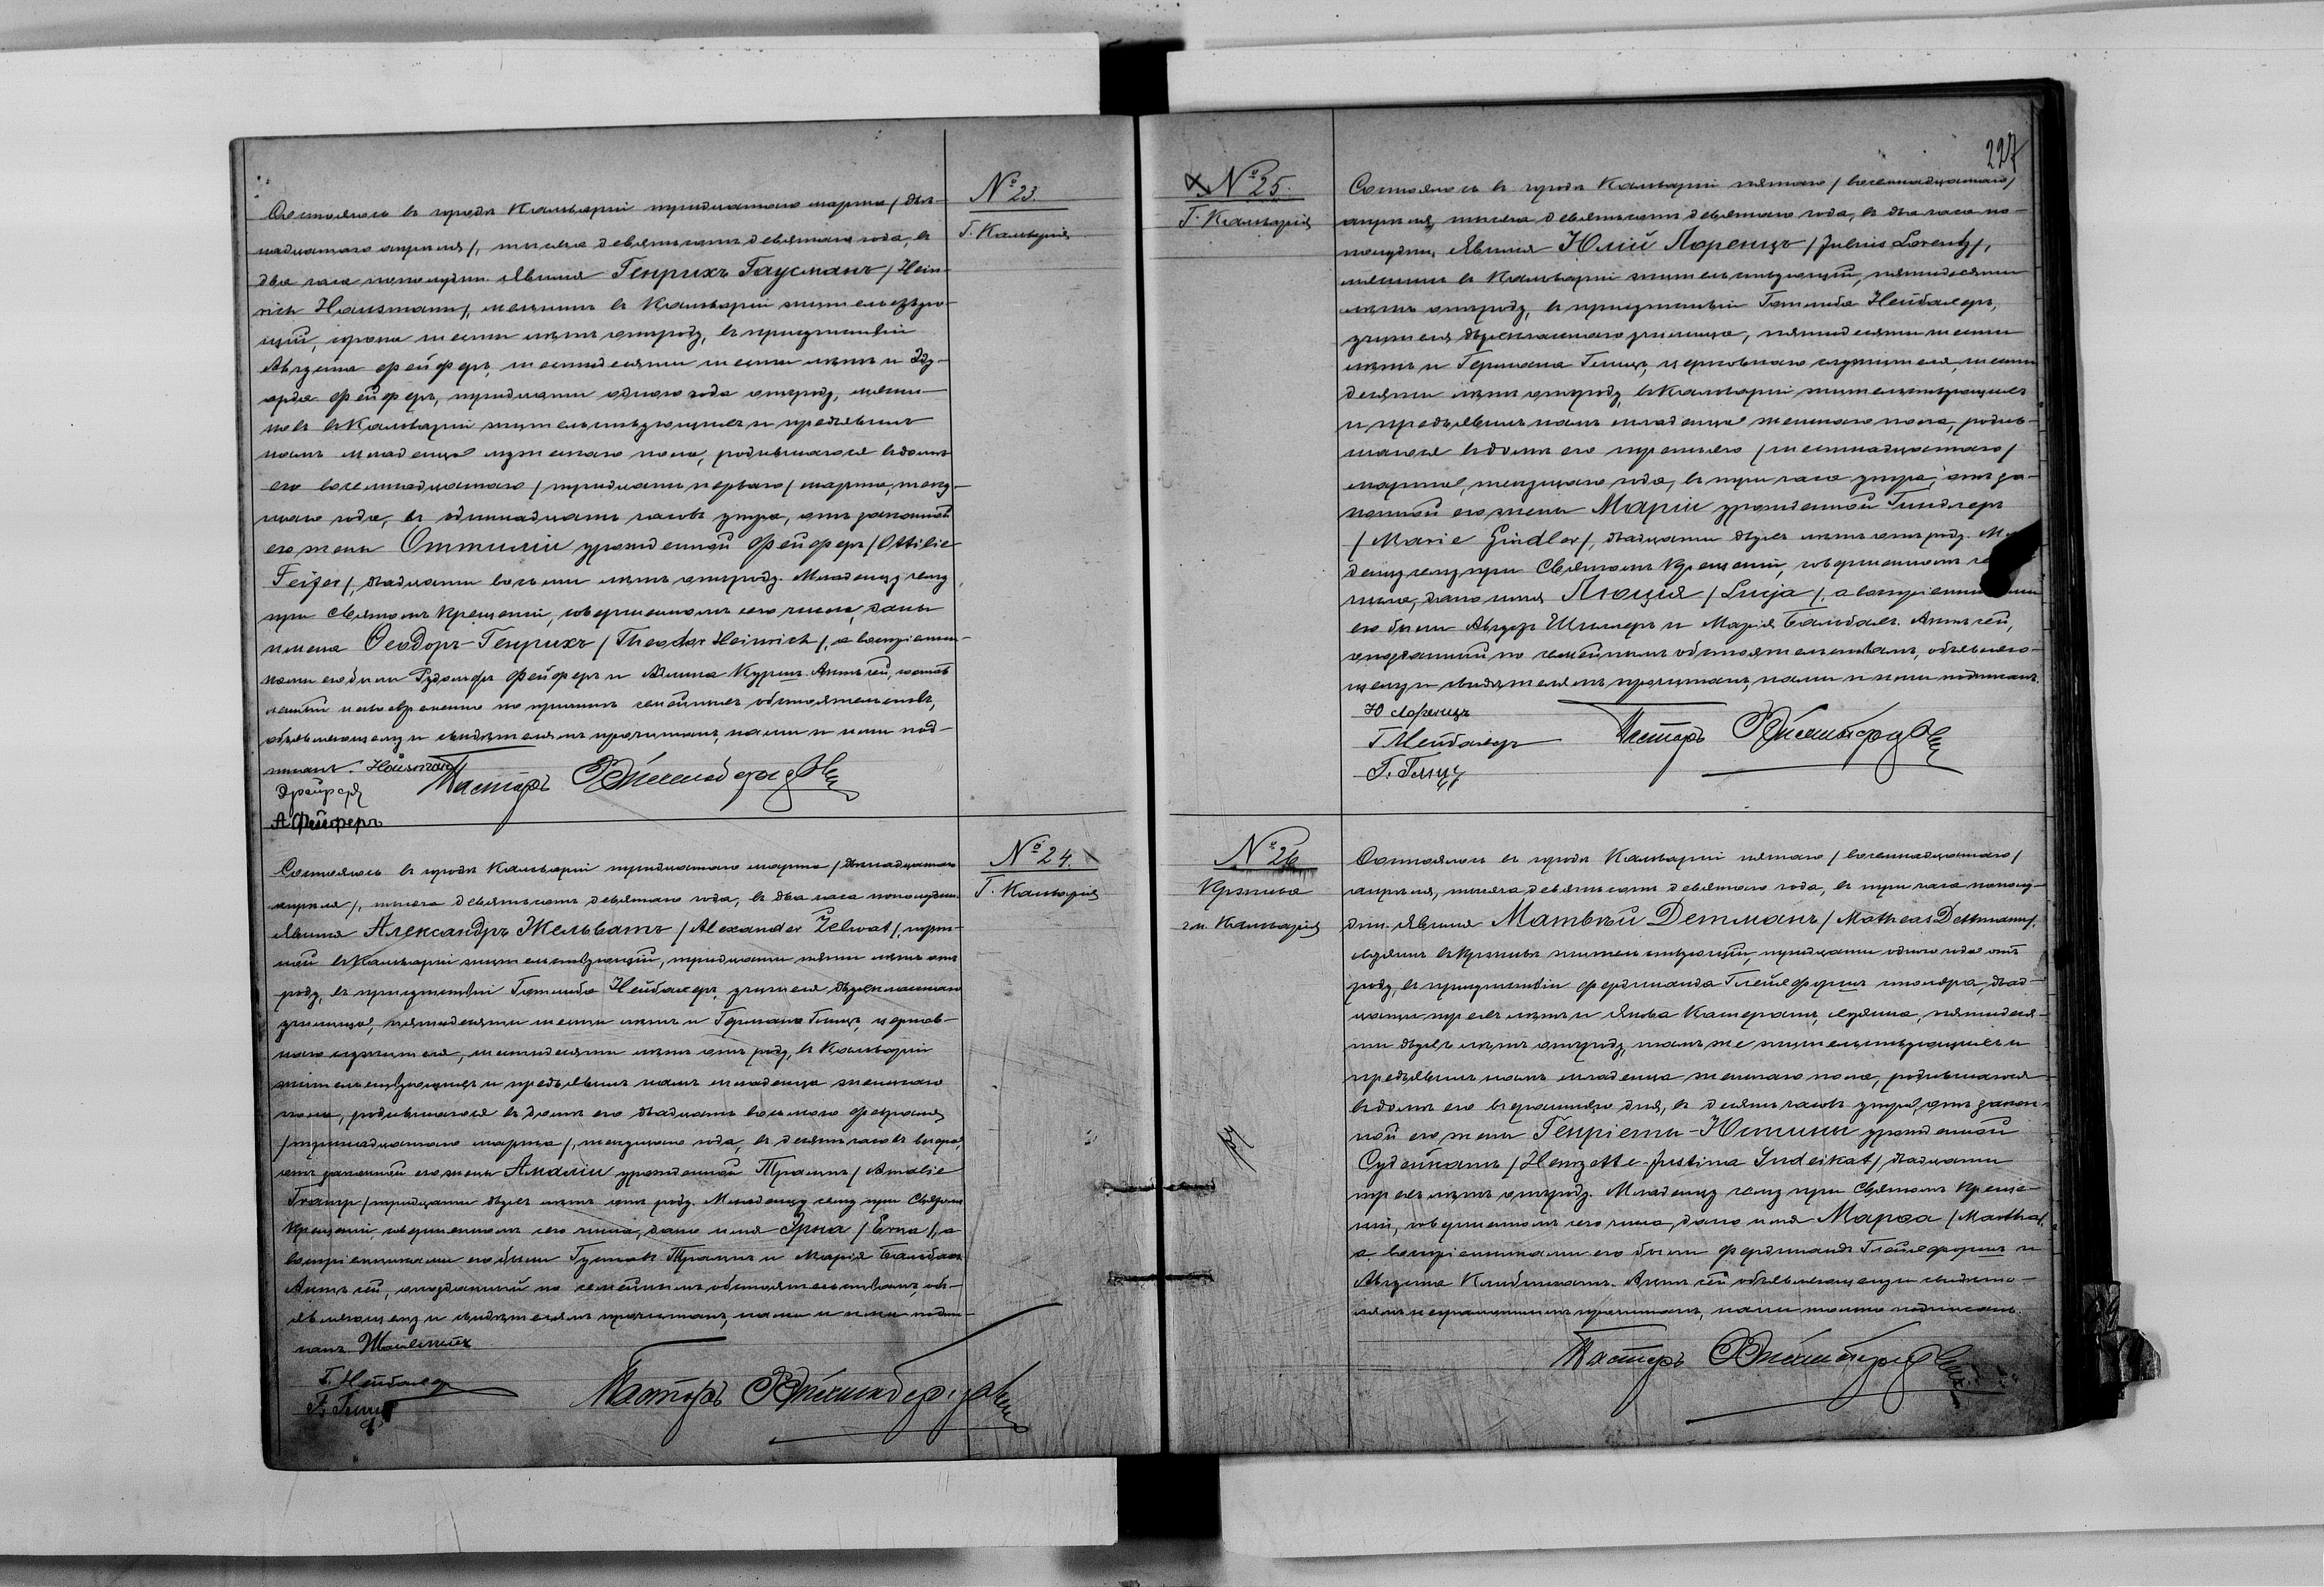 Состоялось въ городѣ Кальваріи тридцатаго марта /двѣ-
надцатаго апрѣля/, тысяча девятьсотъ девятаго года, въ
два часа пополудни. Явился Генрихъ Гаусманъ /Hein-
rich Hausmann/, мещанинъ въ Кальваріи жительствую-
щій, сорока шести лѣтъ отъ роду, въ присутствіи
Августа Фейферъ, шестидесяти шести лѣтъ и Эду-
арда Фейферъ, тридцати одного года отъ роду, мещан-
новъ въ Кальваріи жительствующихъ и предъявилъ
намъ младенца мужескаго пола, родившагося въ домѣ
его восемнадцатаго /тридцать перваго/ марта, теку-
щаго года, въ одиннадцать часовъ утра, отъ законной
его жены Оттиліи урожденной Фейферъ /Ottilie
Feifer/, двадцати восьми лѣтъ отъ роду. Младенцу сему
при Святомъ Крещеніи, совершенномъ сего числа, даны
имена Ѳеодоръ-Генрихъ /Theodor Heinrich/, а воспріемни-
ками его были Рудольфъ Фейферъ и Курпъ. Актъ сей, состав
ленный несвоевременно по причинѣ семейныхъ обстоятельствъ,
объявляющему и свидѣтелямъ прочитанъ, нами и ими под-
писанъ. Hausmann
Эфейферъ
А Фейферъ
Пасторъ
№ 23.
Г. Кальварія
Состоялось въ городѣ Кальваріи тридцатаго марта /двѣнадцатаго
апрѣля/, тысяча девятьсотъ девятаго года, въ два часа пополудни.
Явился Александръ Жельватъ /Alexander Zelwat/, порт-
ной въ Кальваріи жительствующій, тридцати пяти лѣтъ отъ
роду, въ присутствіи Готлиба Нейбахеръ, учителя двухкласснаго
училища, пятидесяти шести лѣтъ и Германа Гинцъ, церков-
наго служителя, шестидесяти лѣтъ отъ роду, въ Кальваріи
жительствующихъ и предъявилъ намъ младенца женскаго
пола, родившагося въ домѣ его двадцать восьмого февраля
/тринадцатаго марта/, текущаго года, въ десять часовъ вечера,
отъ законной его жены Амаліи урожденной Трампъ /Amalie
Tramp/ тридцати двухъ лѣтъ отъ роду. Младенцу сему при Святомъ
Крещеніи, совершенномъ сего числа, дано имя Эрна /Erna/, а
воспріемниками его были Густавъ Трампъ и Марія Бальбахъ
Актъ сей, опозданный по семейнымъ обстоятельствамъ, объ-
являющему и свидѣтелямъ прочитанъ, нами и ими подпи-
санъ.
Г. Нейбахеръ
Г. Гинцъ
Пасторъ
№ 24.
Г. Кальварія
227
№ 25.
Г. Кальварія
Состоялось въ городѣ Кальваріи пятаго /восемнадцатаго/
апрѣля, тысяча девятьсотъ девятаго года, въ два часа по-
полудни, Явился Юлій Лоренцъ /Julius Lorentz/,
въ Кальваріи жительствующій, пятидесяти
лѣтъ отъ роду, въ присутствіи Готлиба Нейбахеръ,
учителя двухкласснаго училища, пятидесяти шести
лѣтъ и Германа Гинцъ, церковнаго служителя, шести
десяти лѣтъ отъ роду, въ Кальваріи жительствующихъ
и предъявилъ намъ младенца женскаго пола, родив-
шагося въ домѣ его третьяго /шестнадцатаго/
марта, текущаго года, въ три часа утра, отъ за-
конной его жены Маріи урожденной Гиндлеръ
/Marie Gindler/, двадцати двухъ лѣтъ отъ роду. М
денцу сему при Святомъ Крещеніи, совершенномъ
числа, дано имя Люція /Lucja/, а воспріемни
его были Августъ Шиллеръ и Марія Бальбахъ. Актъ сей,
опозданный по семейнымъ обстоятельствамъ, объявляю-
щему и свидѣтелямъ прочитанъ, нами и ими подписанъ.
Ю Лоренцъ
Г Нейбахеръ
Г. Гинцъ
Пасторъ
№ 26
гм. Кальварія
Состоялось въ городѣ Кальваріи пятаго /восемнадцатаго/
апрѣля, тысяча девятьсотъ девятаго года, въ три часа пополу-
дни. Явился Матвѣй Детманъ /Matheas Dettmann/,
жительствующій, тридцати одного года отъ
роду, въ присутствіи Фердинанда столяра, двад-
цати трехъ лѣтъ и Якова пятидеся-
ти двухъ лѣтъ отъ роду, тамъ же жительствующихъ и
предъявилъ намъ младенца женскаго пола, родившагося
въ домѣ его вчерашняго дня, въ десять часовъ утра, отъ закон-
ной его жены Генріеты-Юстины урожденной
Судейкатъ /Henryette-Justina Sudeikat/ двадцати
трехъ лѣтъ отъ роду. Младенцу сему при Святомъ Креще-
ніи, совершенномъ сего числа, дано имя Марѳа /Martha/,
а воспріемниками его были Фердинандъ и
Августа Актъ сей объявляющему и свидѣте-
лямъ неграмотнымъ прочитанъ, нами только подписанъ.
Пасторъ